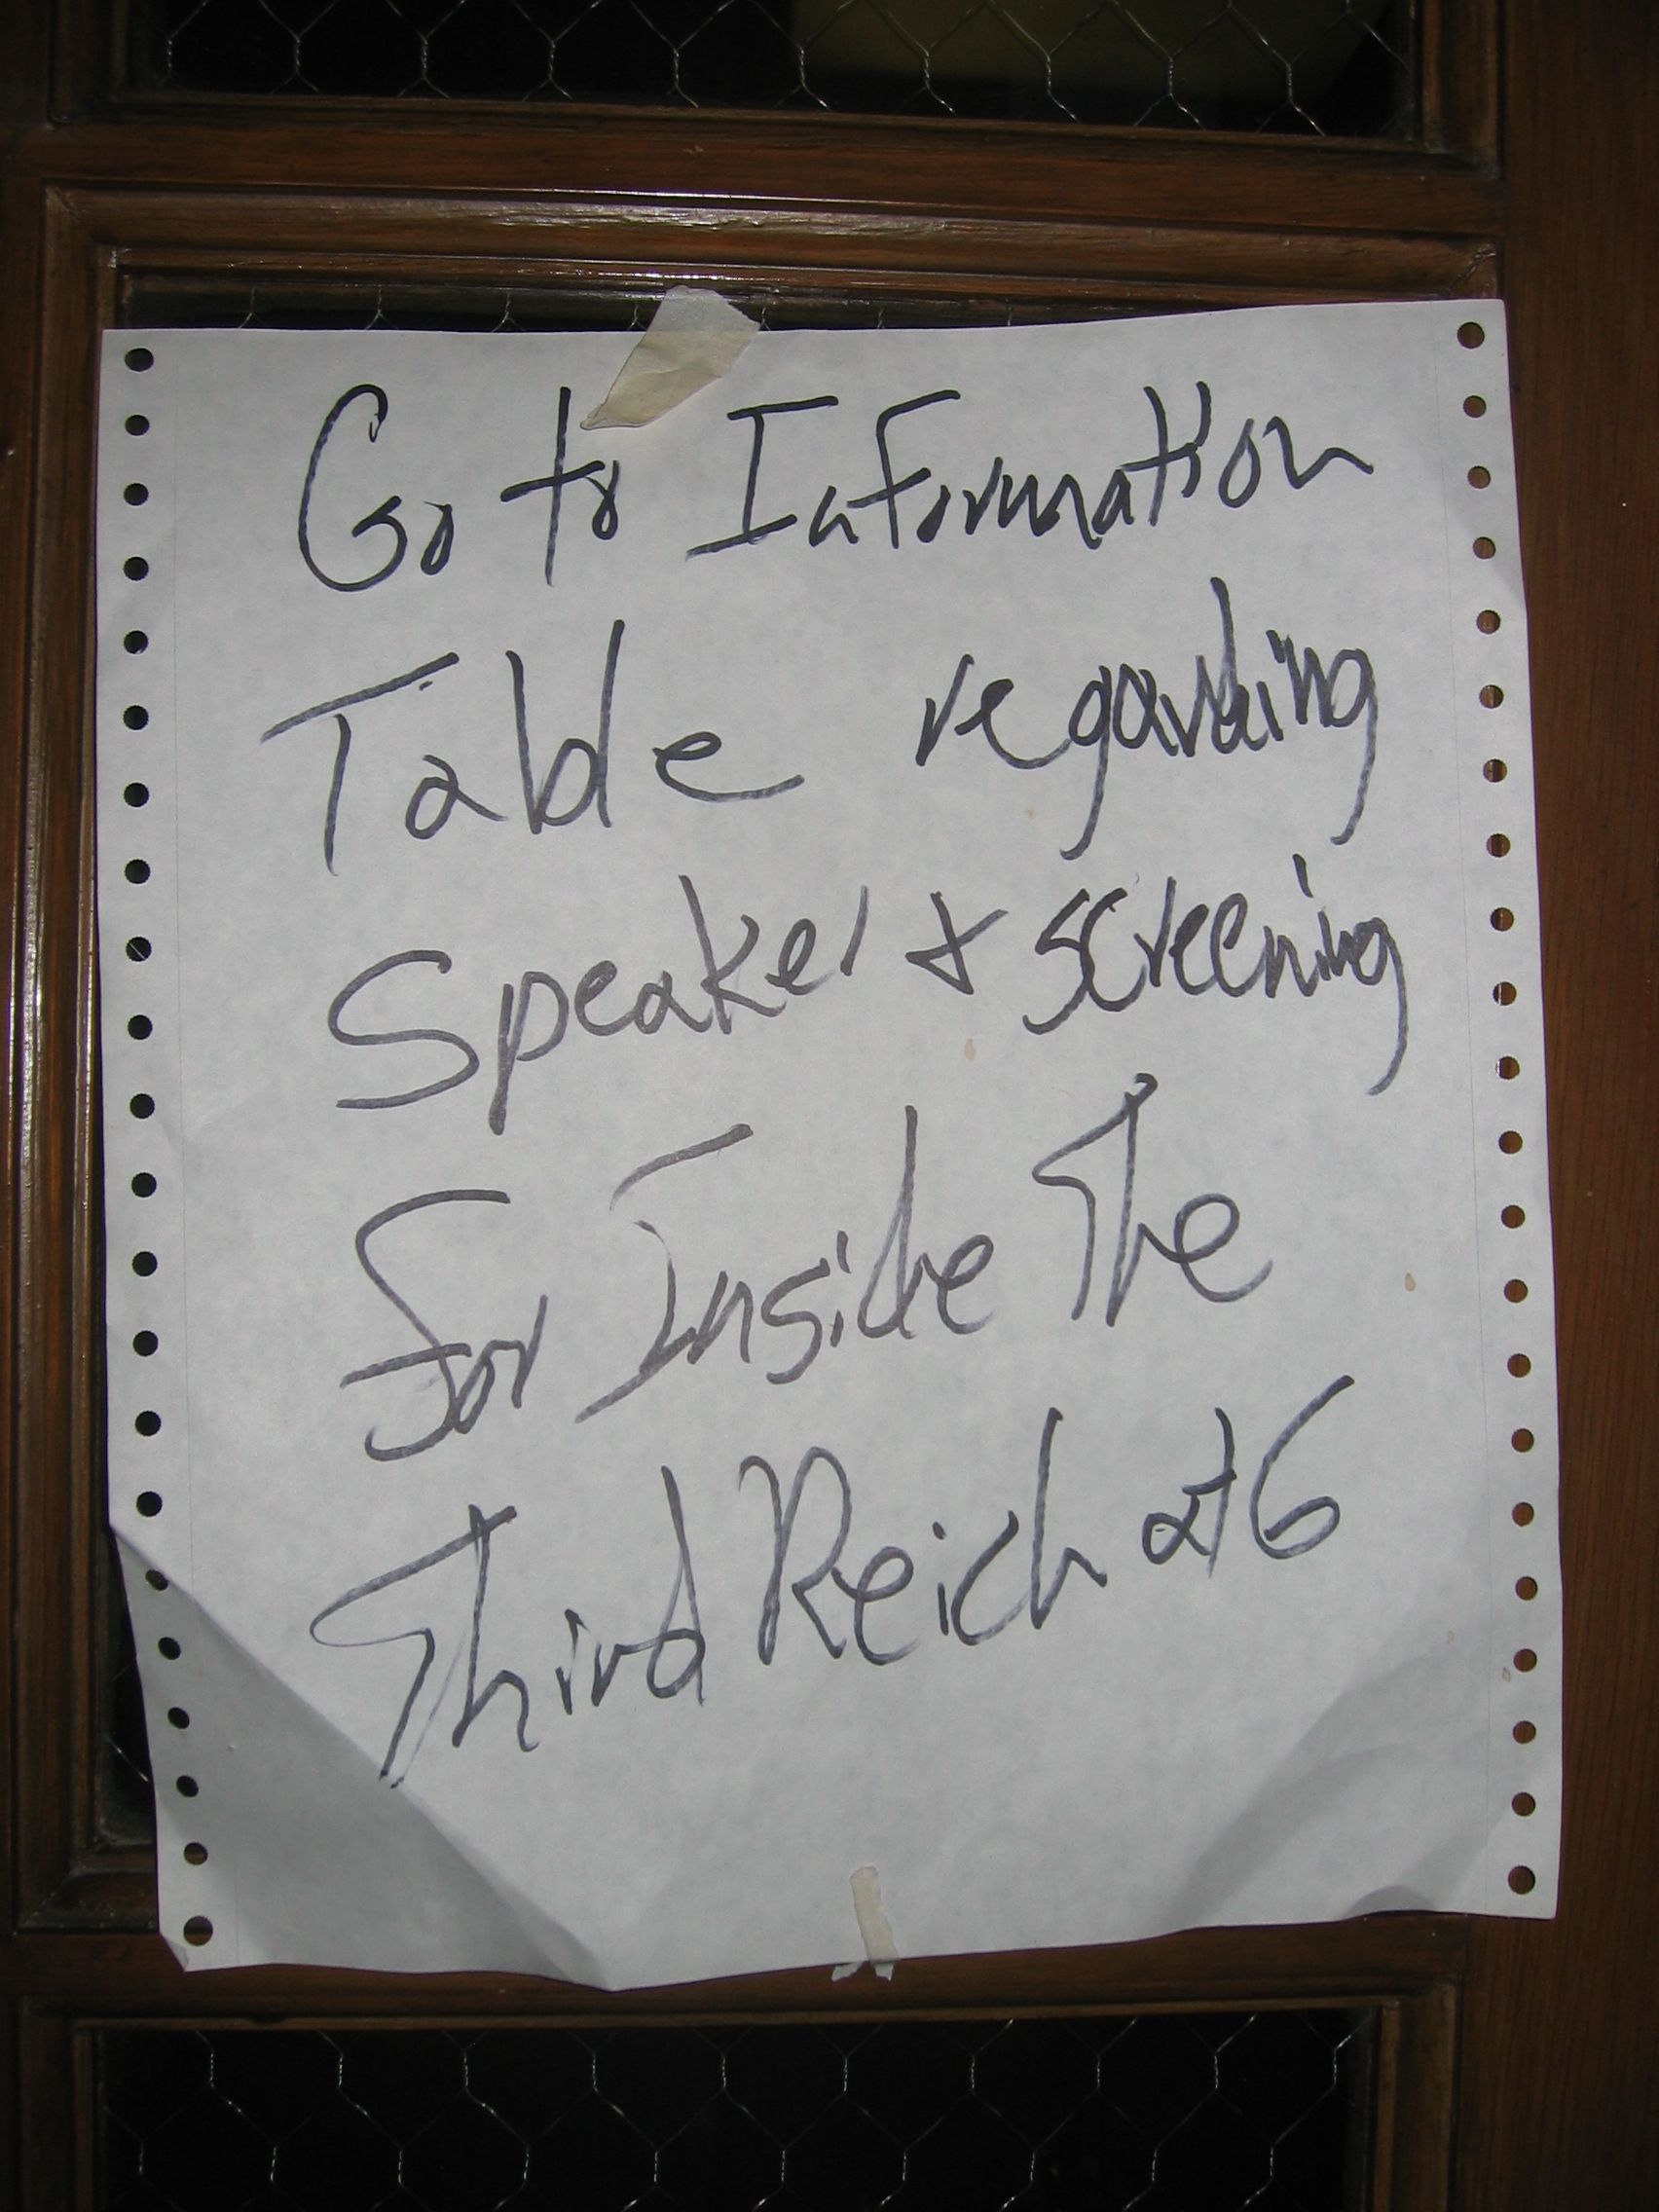 Go to Information
Table regarding
Speaker & screening
for Inside The
Third Reich at 6